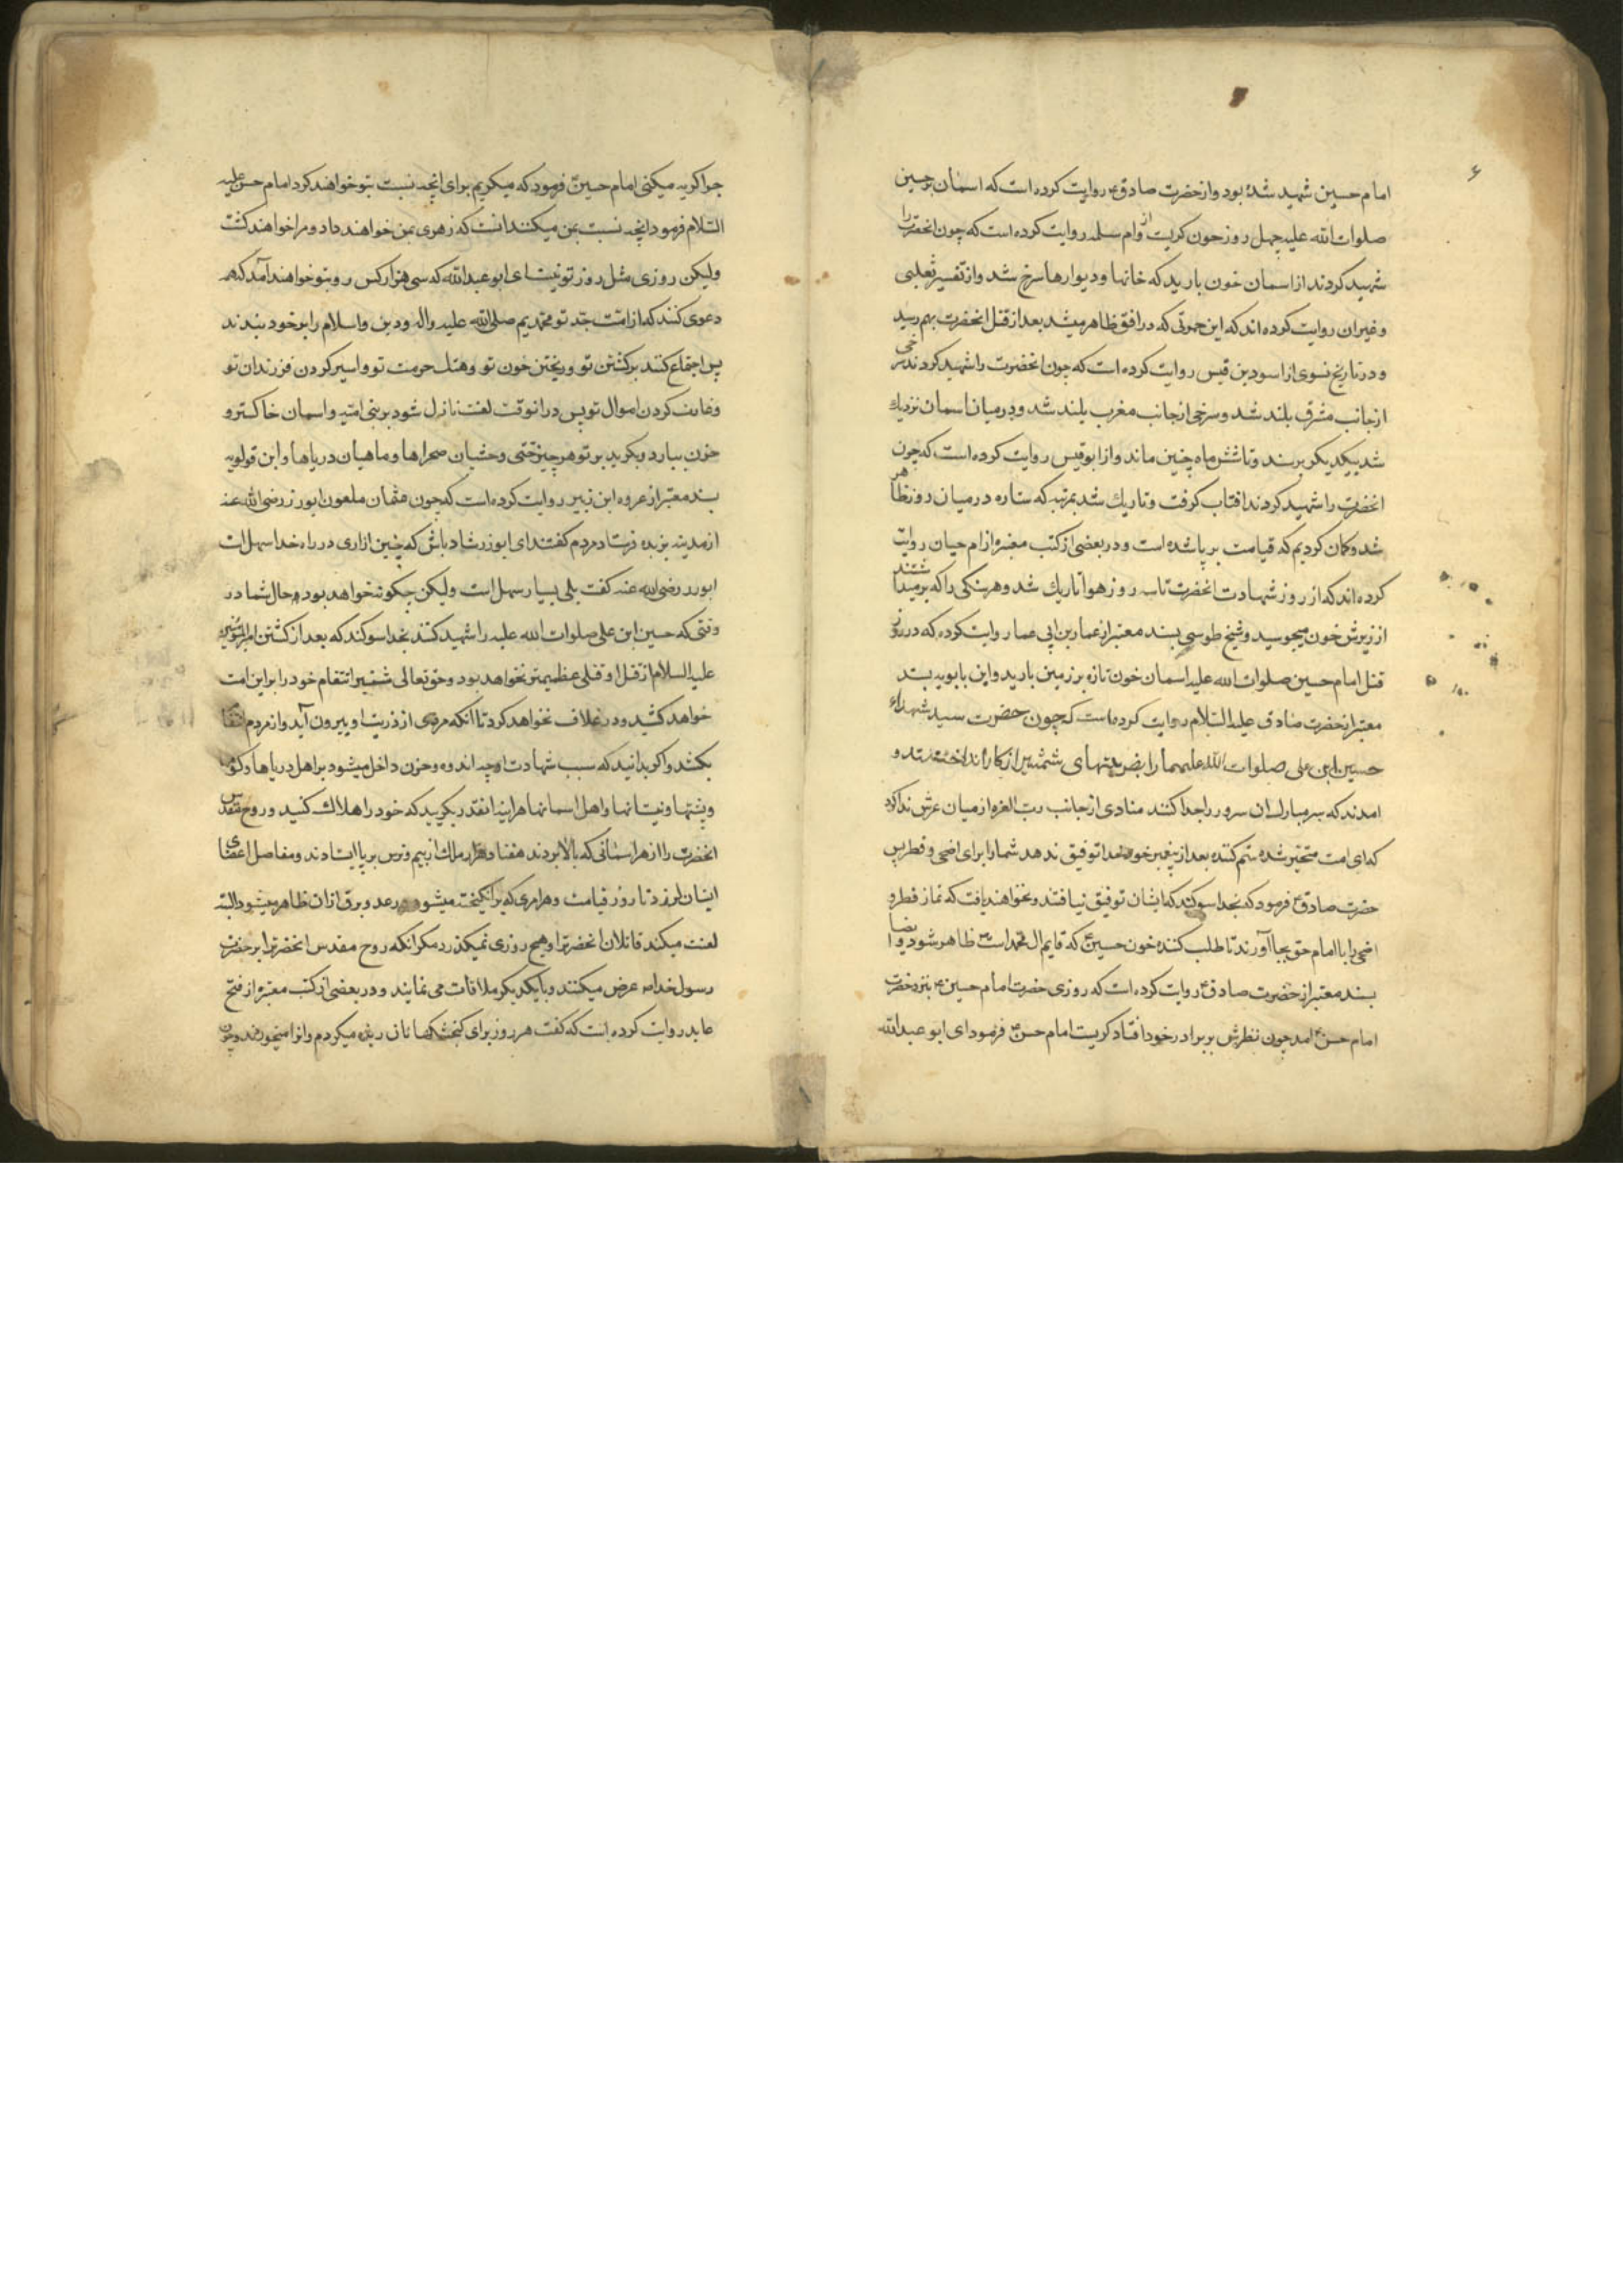 ۶
امام حسین شهید شده بود و از حضرت صادق ع روایت کرده است که اسمان بر حسین
صلوات الله علیه چهل روز خون کریست و از ام سلمه روایت کرده است که چون انحضرت را
شهید کردند از اسمان خون بارید که خانها و دیوارها سرخ شد و از تفسیر ثعلبی
و غیران روایت کرده اند که این حمرتی که در افق ظاهر میشد بعد از قتل انحضرت بهم رسید
و در تاریخ نسوی از اسود بن قیس روایت کرده است که چون انحضرت را شهید کردند سرخی
از جانب مشرق بلند شد و سرخی از جانب مغرب بلند شد و در میان اسمان نزدیک
شد بیکدیکر برسند و تا شش ماه چنین ماند و از ابو قبیس روایت کرده است که چون
انحضرت را شهید کردند افتاب کرفت و تاریک شد بمرتبه که ستاره در میان روز ظاهر
شد و کمان کردیم که قیامت برپا شده است و در بعضی از کتب معتبره از ام حیان روایت
کرده اند که از روز شهادت انحضرت تا سه روز هوا تاریک شد و هر سنکی را که بر میداشتند
از زیرش خون میجوسید و شیخ طوسی بسند معتبر از عمار بن ابی عمار روایت کرده که در روز
قتل امام حسین صلوات الله علیه اسمان خون تازه بر زمین بارید و ابن بابویه بسند
معتبر از حضرت صادق علیه السلام روایت کرده است که چون حضرت سید شهداء
حسین ابن علی صلوات الله علیهما را بضربتهای شمشیر از کار انداختند و
امدند که سر مبارک ان سرور را جدا کنند منادی از جانب رب العزه از میان عرش ندا کرد
که ای امت متحیر شده ستم کننده بعد از پیغمبر خود خدا توفیق ندهد شما را برای اضحی و فطر پس
حضرت صادق ع فرمود که بخدا سوکند که ایشان توفیق نیافتند و نخواهند یافت که نماز فطر و
اضحی را با امام حق بجا آورند تا طلب کننده خون حسین ع که قایم ال محمد است ظاهر شود و ایضا
بسند معتبر از حضرت صادق ع روایت کرده است که روزی حضرت امام حسین ع بنزد حضرت
امام حسن ع امد چون نظرش بر برادر خود افتاد کریست امام حسن ع فرمود ای ابو عبدالله
چرا کریه میکنی امام حسین ع فرمود که میکریم برای انچه نسبت بتو خواهند کرد امام حسن علیه
السلام فرمود انچه نسبت بمن میکنند انست که زهری بمن خواهند داد و مرا خواهند کشت
ولیکن روزی مثل روز تو نیست ای ابو عبدالله که سی هزار کس رو بتو خواهند آمد که همه
دعوی کنند که از امت جد تو محمدیم صلی الله علیه واله و دین و اسلام را بر خود بندند
پس اجتماع کنند بر کشتن تو و ریختن خون تو و هتک حرمت تو و اسیر کردن فرزندان تو
و غارت کردن اموال تو پس در انوقت لعنت نازل شود بر بنی امیه و اسمان خاکستر و
خون ببارد و بکرید بر تو هر چیز حتی وحشیان صحراها و ماهیان دریاها و ابن قولویه
بسند معتبر از عروه ابن زبیر روایت کرده است که چون عثمان ملعون ابوذر رضی الله عنه
از مدینه بربذه فرستاد مردم کفتند ای ابوذر شاد باش که چنین ازاری در راه خدا سهل است
ابوذر رضی الله عنه کفت بلی بسیار سهل است ولیکن چکونه خواهد بود حال شما در
وقتی که حسین ابن علی صلوات الله علیه را شهید کنند بخدا سوکند که بعد از کشتن امیرالمومنین
علیه السلام از قتل او قتلی عظیمتر نخواهد بود و حق تعالی شمشیر انتقام خود را بر این امت
خواهد کشید و در غلاف نخواهد کرد تا انکه مردی از ذریت او بیرون آید و از مردم انتقام
بکشد و اکر بدانید که سبب شهادت او چه اندوه و حزن داخل میشود بر اهل دریاها و کوه
و پشتها و نیستانها و اهل اسمانها هراینه انقدر بکریید که خود را هلاک کنید و روح مقدس
انحضرت را از هر اسمانی که بالا بردند هفتاد هزار ملک از بیم و ترس بر پا ایستادند و مفاصل اعضای
ایشان لرزد تا روز قیامت و هر ابری که برانکیخته میشود و رعد و برق از ان ظاهر میشود البته
لعنت میکند قاتلان انحضرت را و هیچ روزی نمیکذرد مکر انکه روح مقدس انحضرت را بر حضرت
رسول خدا ص عرض میکنند و با یکدیکر ملاقات می نمایند و در بعضی از کتب معتبره از فتح
عابد روایت کرده است که کفت هر روز برای کنجشکها نان ریزه میکردم و انرا میخوردند